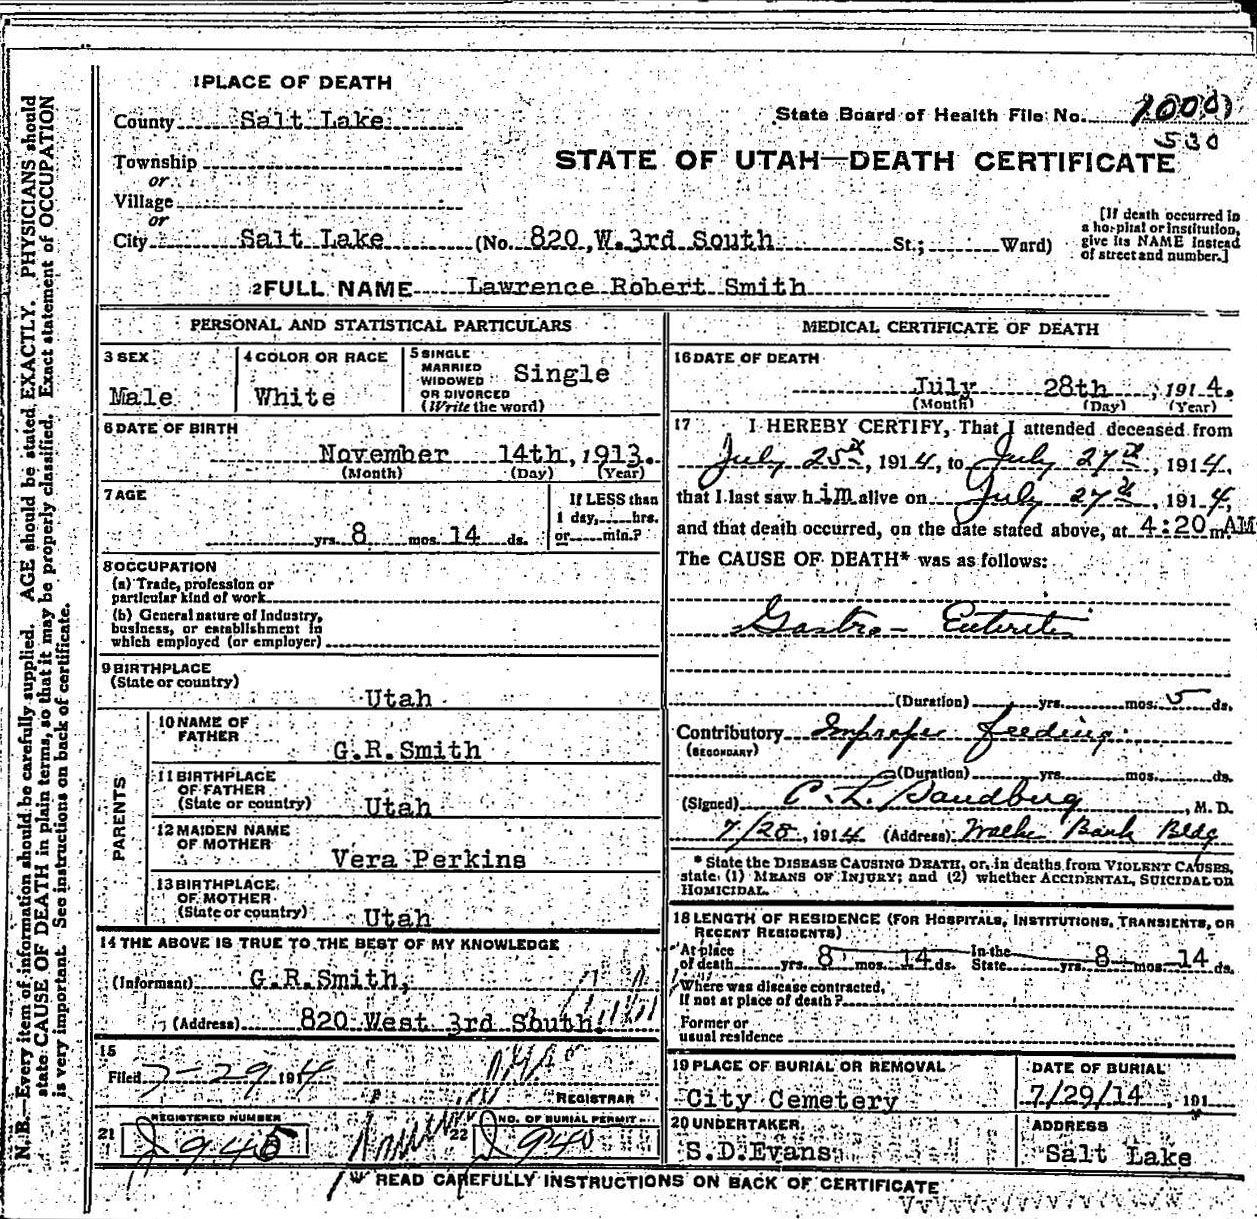 1 PLACE OF DEATH
County Salt Lake
State Board of Health File No. 1000
530
Township
or
STATE OF UTAH—DEATH CERTIFICATE
Village
or
City Salt Lake (No. 820 W. 3rd South St.; Ward)
[If death occurred in
a hospital or institution,
give its NAME instead
of street and number.]
2 FULL NAME Lawrence Robert Smith
PERSONAL AND STATISTICAL PARTICULARS
3 SEX
Male
4 COLOR OR RACE
White
5 SINGLE
MARRIED
WIDOWED
OR DIVORCED
(Write the word)
Single
6 DATE OF BIRTH
November 14th, 1913.
(Month) (Day) (Year)
7 AGE
yrs. 8 mos. 14 ds.
If LESS than
1 day, hrs.
or min.?
8 OCCUPATION
(a) Trade, profession or
particular kind of work
(b) General nature of Industry,
business, or establishment in
which employed (or employer)
9 BIRTHPLACE
(State or country)
Utah
PARENTS
10 NAME OF
FATHER
G.R.Smith
11 BIRTHPLACE
OF FATHER
(State or country)
Utah
12 MAIDEN NAME
OF MOTHER
Vera Perkins
13 BIRTHPLACE
OF MOTHER
(State or country)
Utah
14 THE ABOVE IS TRUE TO THE BEST OF MY KNOWLEDGE
(Informant) G.R.Smith,
(Address) 820 West 3rd South.
15
Filed 7-29 1914
REGISTRAR
REGISTERED NUMBER
21 J 945
NO. OF BURIAL PERMIT
22 J 940
MEDICAL CERTIFICATE OF DEATH
16 DATE OF DEATH
July 28th, 1914.
(Month) (Day) (Year)
17 I HEREBY CERTIFY, That I attended deceased from
July 25th, 1914, to July 27th, 1914.
that I last saw him alive on July 27th, 1914,
and that death occurred, on the date stated above, at 4:20 m. AM
The CAUSE OF DEATH* was as follows:
Gastro-Enteritis
(Duration) yrs. mos. 5 ds.
Contributory Improper feeding
(SECONDARY)
(Duration) yrs. mos. ds.
(Signed) C. L. Sandberg, M.D.
7/28, 1914 (Address) Walker Bank Bldg
* State the DISEASE CAUSING DEATH, or, in deaths from VIOLENT CAUSES,
state (1) MEANS OF INJURY; and (2) whether ACCIDENTAL, SUICIDAL OR
HOMICIDAL.
18 LENGTH OF RESIDENCE (FOR HOSPITALS, INSTITUTIONS, TRANSIENTS, OR
RECENT RESIDENTS)
At place
of death yrs. 8 mos. 14 ds.
In the
State yrs. 8 mos. 14 ds.
Where was disease contracted,
If not at place of death?
Former or
usual residence
19 PLACE OF BURIAL OR REMOVAL
City Cemetery
DATE OF BURIAL
7/29/14, 191
20 UNDERTAKER
S.D.Evans
ADDRESS
Salt Lake
READ CAREFULLY INSTRUCTIONS ON BACK OF CERTIFICATE
N. B.—Every item of information should be carefully supplied. AGE should be stated EXACTLY. PHYSICIANS should
state CAUSE OF DEATH in plain terms, so that it may be properly classified. Exact statement of OCCUPATION
is very important. See instructions on back of certificate.